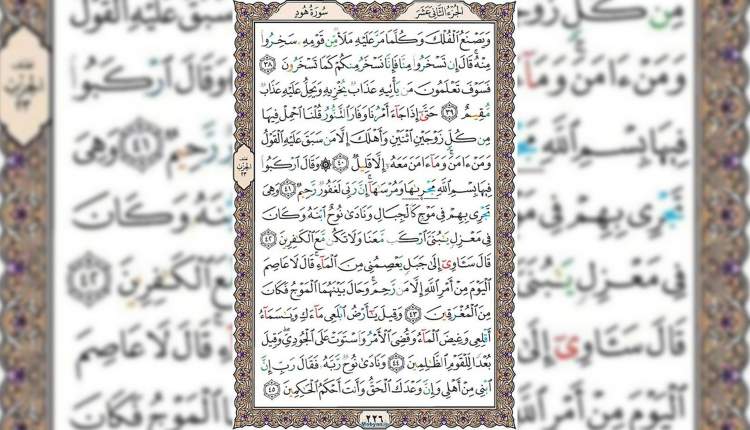 الجزء الثاني عشر
سورة هود
وَيَصْنَعُ ٱلْفُلْكَ وَكُلَّمَا مَرَّ عَلَيْهِ مَلَأٌ مِّن قَوْمِهِۦ سَخِرُوا۟
مِنْهُ ۚ قَالَ إِن تَسْخَرُوا۟ مِنَّا فَإِنَّا نَسْخَرُ مِنكُمْ كَمَا تَسْخَرُونَ ٣٨
فَسَوْفَ تَعْلَمُونَ مَن يَأْتِيهِ عَذَابٌ يُخْزِيهِ وَيَحِلُّ عَلَيْهِ عَذَابٌ
مُّقِيمٌ ٣٩ حَتَّىٰٓ إِذَا جَآءَ أَمْرُنَا وَفَارَ ٱلتَّنُّورُ قُلْنَا ٱحْمِلْ فِيهَا
مِن كُلٍّ زَوْجَيْنِ ٱثْنَيْنِ وَأَهْلَكَ إِلَّا مَن سَبَقَ عَلَيْهِ ٱلْقَوْلُ
وَمَنْ ءَامَنَ ۚ وَمَآ ءَامَنَ مَعَهُۥٓ إِلَّا قَلِيلٌ ٤٠ ۞ وَقَالَ ٱرْكَبُوا۟
فِيهَا بِسْمِ ٱللَّهِ مَجْر۪ىٰهَا وَمُرْسَىٰهَآ ۚ إِنَّ رَبِّى لَغَفُورٌ رَّحِيمٌ ٤١ وَهِىَ
تَجْرِى بِهِمْ فِى مَوْجٍ كَٱلْجِبَالِ وَنَادَىٰ نُوحٌ ٱبْنَهُۥ وَكَانَ
فِى مَعْزِلٍ يَـٰبُنَىَّ ٱرْكَب مَّعَنَا وَلَا تَكُن مَّعَ ٱلْكَـٰفِرِينَ ٤٢
قَالَ سَـَٔاوِىٓ إِلَىٰ جَبَلٍ يَعْصِمُنِى مِنَ ٱلْمَآءِ ۚ قَالَ لَا عَاصِمَ
ٱلْيَوْمَ مِنْ أَمْرِ ٱللَّهِ إِلَّا مَن رَّحِمَ ۚ وَحَالَ بَيْنَهُمَا ٱلْمَوْجُ فَكَانَ
مِنَ ٱلْمُغْرَقِينَ ٤٣ وَقِيلَ يَـٰٓأَرْضُ ٱبْلَعِى مَآءَكِ وَيَـٰسَمَآءُ
أَقْلِعِى وَغِيضَ ٱلْمَآءُ وَقُضِىَ ٱلْأَمْرُ وَٱسْتَوَتْ عَلَى ٱلْجُودِىِّ ۖ وَقِيلَ
بُعْدًا لِّلْقَوْمِ ٱلظَّـٰلِمِينَ ٤٤ وَنَادَىٰ نُوحٌ رَّبَّهُۥ فَقَالَ رَبِّ إِنَّ
ٱبْنِى مِنْ أَهْلِى وَإِنَّ وَعْدَكَ ٱلْحَقُّ وَأَنتَ أَحْكَمُ ٱلْحَـٰكِمِينَ ٤٥
٢٢٦